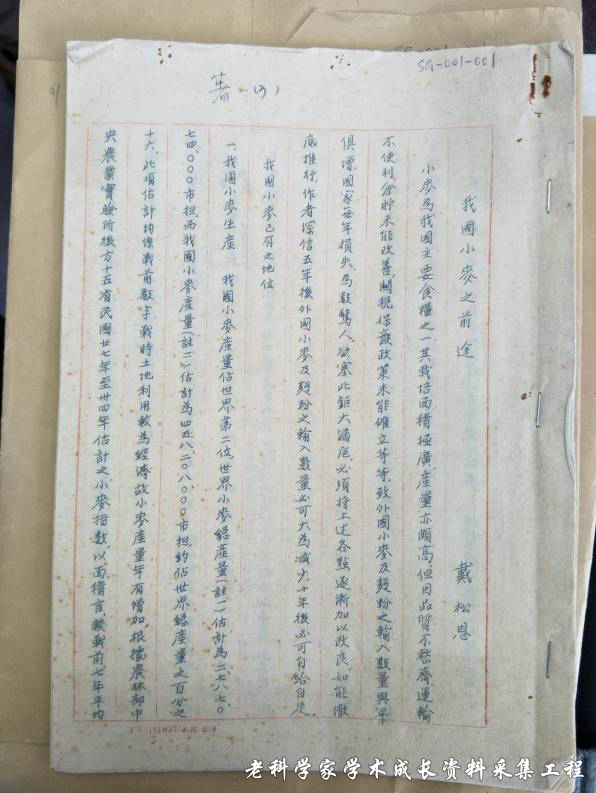 SG-001-001
著(3)
我國小麥之前途
戴松恩
小麥為我國主要食糧之一,其栽培面積極廣,產量亦頗高,但因品質不整齊,運輸
不便利,倉貯未能改善,關稅保護政策未能確立等等,致外國小麥及麵粉之輸入數量與年
俱增,國家每年損失,為數驚人。欲塞此鉅大漏卮,必須將上述各點逐漸加以改良,如能徹
底推行,作者深信五年後外國小麥及麵粉之輸入數量必可大為減少,十年後必可自給自足。
我國小麥已有之地位
一、我國小麥生產: 我國小麥產量佔世界第二位,世界小麥總產量(註一)估計為二七八七〇
七四、〇〇〇市担,而我國小麥產量(註二)估計為四五八二〇八〇〇〇市担,約佔世界總產量之百分之
十六。此項估計均係戰前數字,戰時土地利用較為經濟,故小麥產量年有增加,根據農林部中
央農業實驗所後方十五省民國廿七年至卅四年估計之小麥指數,以面積言,較戰前七年平均
老科学家学术成长资料采集工程